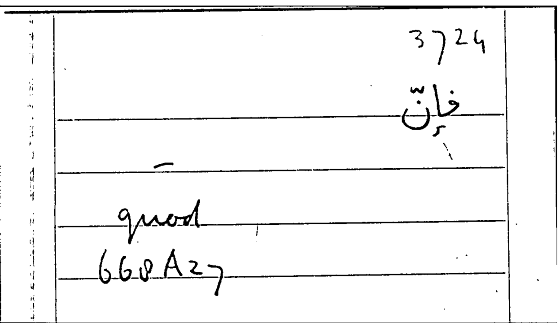 3724
فإنّ
–
quod
668A27